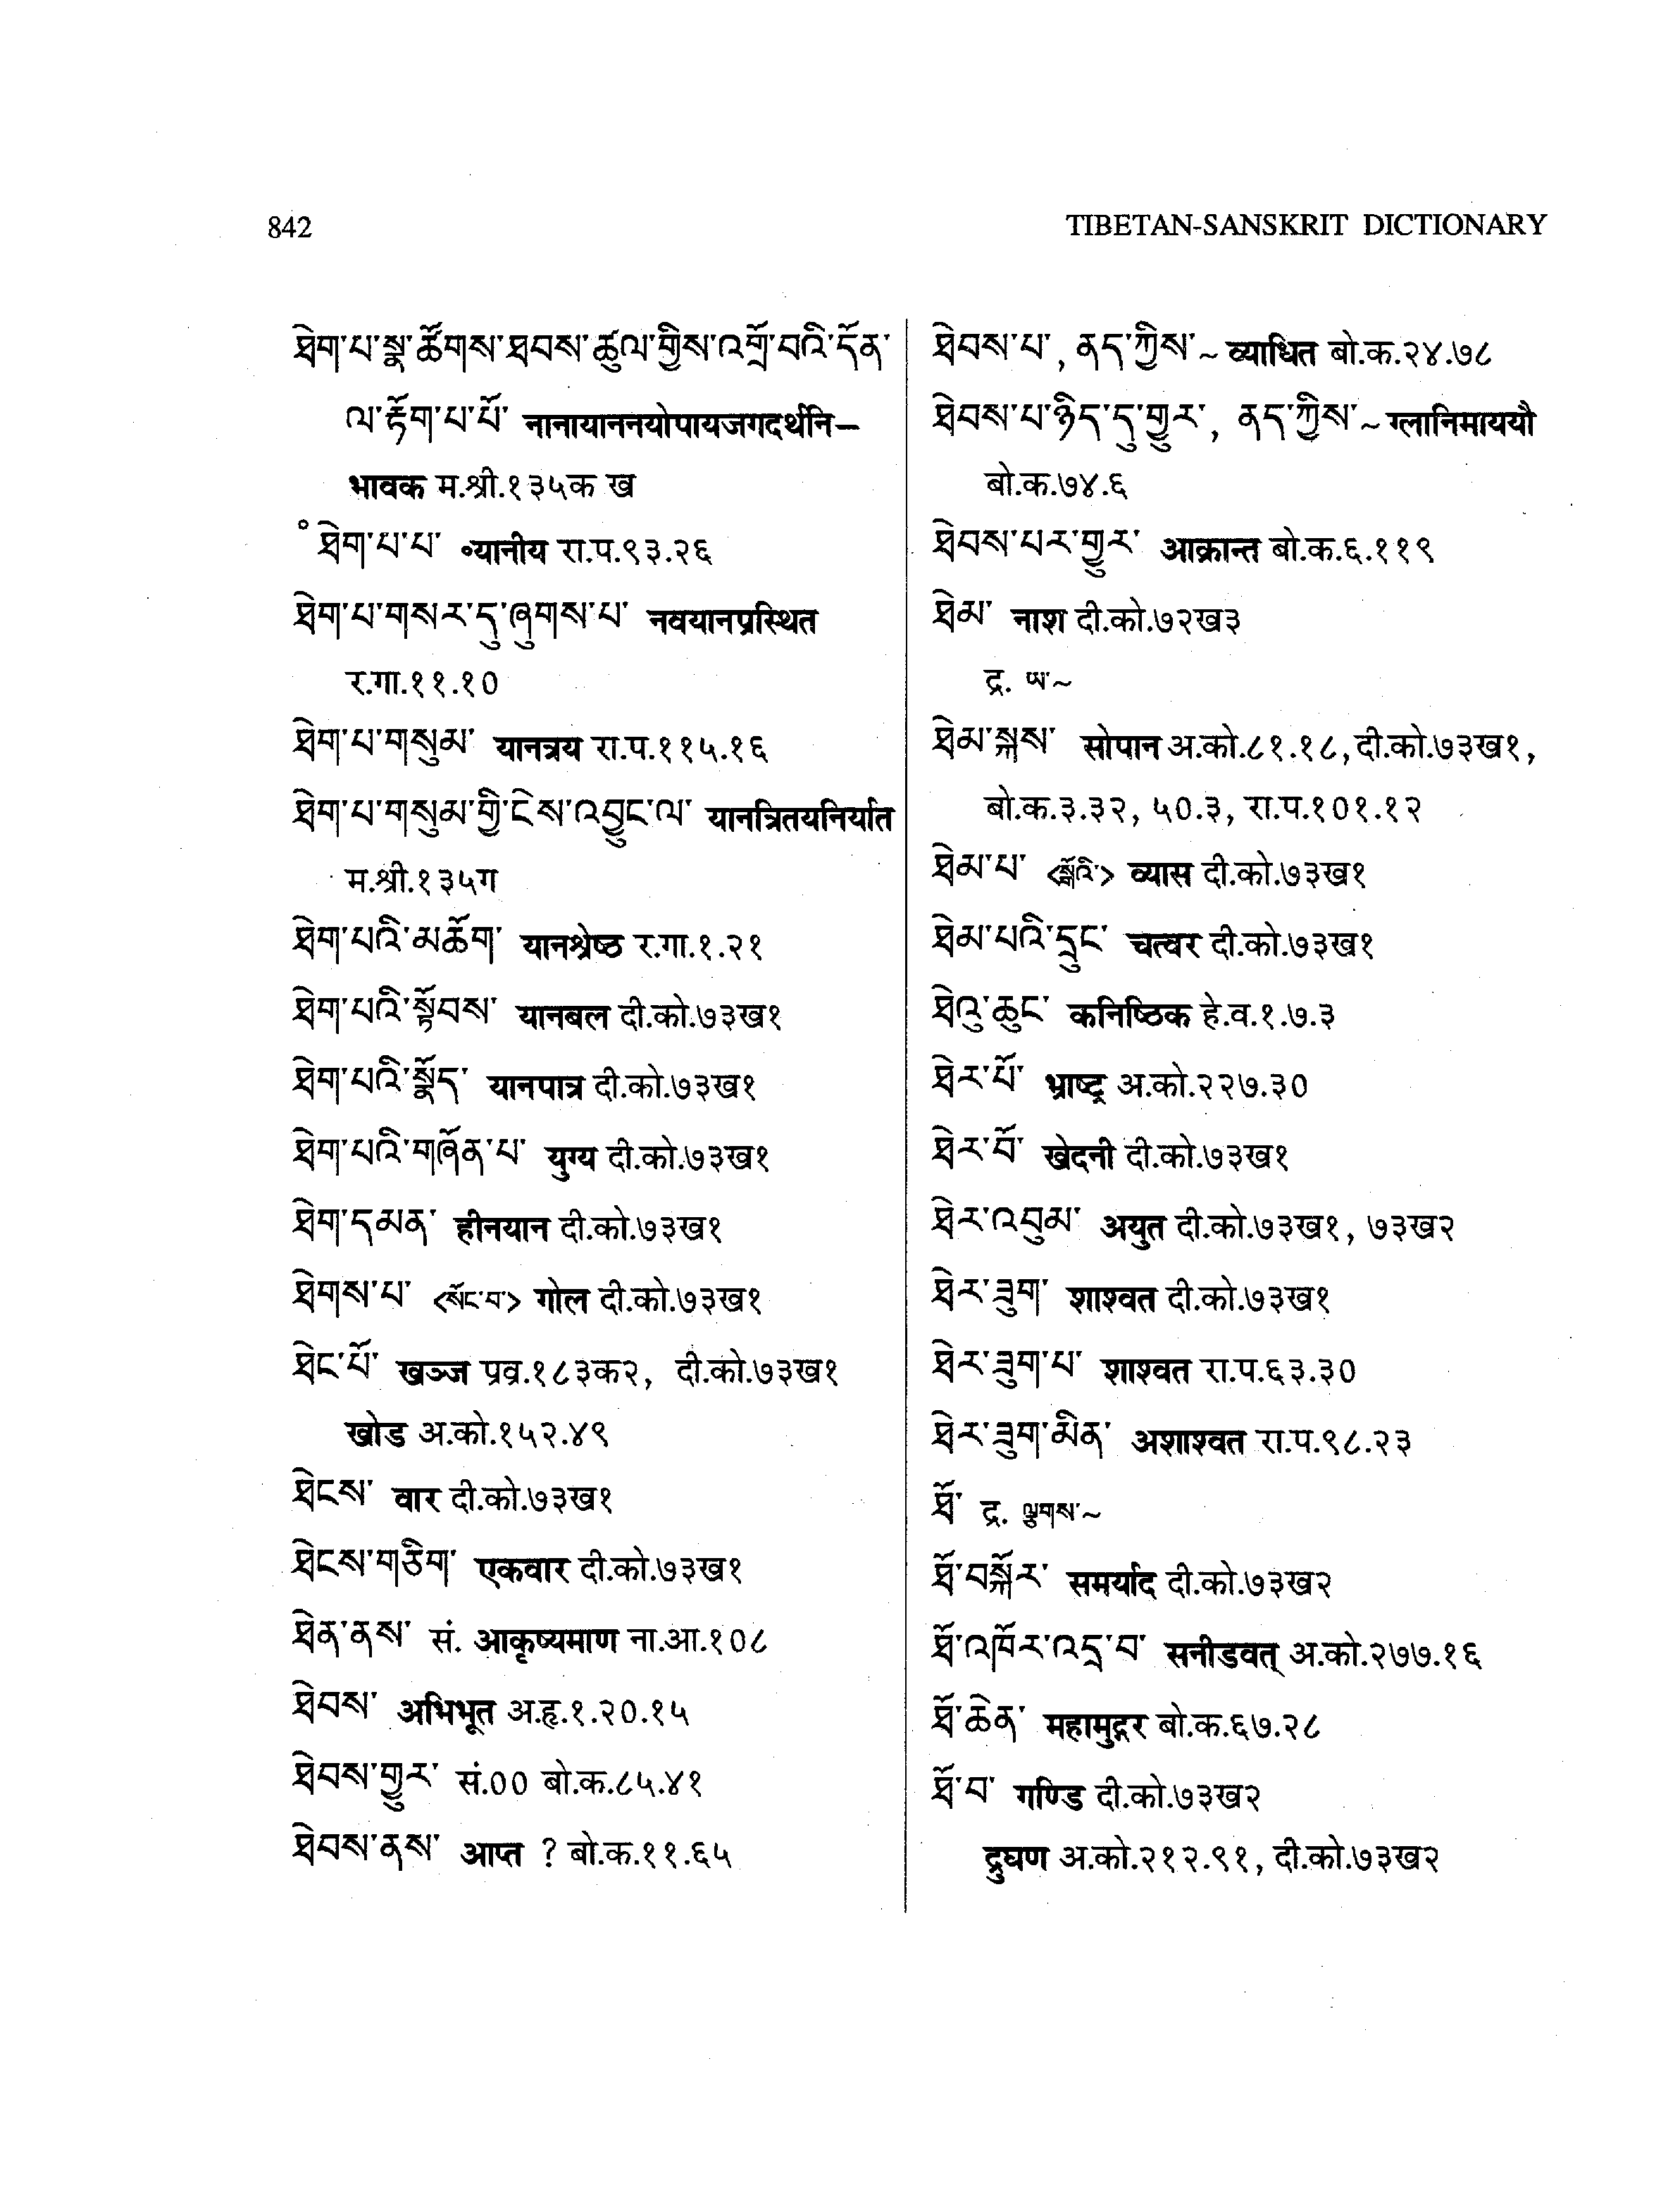 842
TIBETAN-SANSKRIT DICTIONARY
ཐེག་པ་སྣ་ཚོགས་ཐབས་ཚུལ་གྱིས་འགྲོ་བའི་དོན་
ལ་རྟོག་པ་པོ་ नानायाननयोपायजगदर्थनि–
भावक म.श्री.१३५क ख
° ཐེག་པ་པ་ ॰यानीय रा.प.९३.२६
ཐེག་པ་གསར་དུ་ཞུགས་པ་ नवयानप्रस्थित
र.गा.११.१०
ཐེག་པ་གསུམ་ यानत्रय रा.प.११५.१६
ཐེག་པ་གསུམ་གྱི་ངེས་འབྱུང་ལ་ यानत्रितयनिर्यात
म.श्री.१३५ग
ཐེག་པའི་མཆོག་ यानश्रेष्ठ र.गा.१.२१
ཐེག་པའི་སྟོབས་ यानबल दी.को.७३ख१
ཐེག་པའི་སྣོད་ यानपात्र दी.को.७३ख१
ཐེག་པའི་གཞོན་པ་ युग्य दी.को.७३ख१
ཐེག་དམན་ हीनयान दी.को.७३ख१
ཐེགས་པ་ <སོང་བ་> गोल दी.को.७३ख१
ཐེང་པོ་ खञ्ज प्रव्र.१८३क२, दी.को.७३ख१
खोड अ.को.१५२.४९
ཐེངས་ वार दी.को.७३ख१
ཐེངས་གཅིག་ एकवार दी.को.७३ख१
ཐེན་ནས་ सं. आकृष्यमाण ना.आ.१०८
ཐེབས་ अभिभूत अ.हृ.१.२०.१५
ཐེབས་གྱུར་ सं.०० बो.क.८५.४१
ཐེབས་ནས་ आप्त ? बो.क.११.६५
ཐེབས་པ་, ནད་ཀྱིས་~ व्याधित बो.क.२४.७८
ཐེབས་པ་ཉིད་དུ་གྱུར་, ནད་ཀྱིས་~ ग्लानिमाययौ
बो.क.७४.६
ཐེབས་པར་གྱུར་ आक्रान्त बो.क.६.११९
ཐེམ་ नाश दी.को.७२ख३
द्र. ཨ་~
ཐེམ་སྐས་ सोपान अ.को.८१.१८, दी.को.७३ख१,
बो.क.३.३२, ५०.३, रा.प.१०१.१२
ཐེམ་པ་ <སྒོའི་> व्यास दी.को.७३ख१
ཐེམ་པའི་དྲུང་ चत्वर दी.को.७३ख१
ཐེའུ་ཆུང་ कनिष्ठिक हे.व.१.७.३
ཐེར་པོ་ भ्राष्ट्र अ.को.२२७.३०
ཐེར་བོ་ खेदनी दी.को.७३ख१
ཐེར་འབུམ་ अयुत दी.को.७३ख१, ७३ख२
ཐེར་ཟུག་ शाश्वत दी.को.७३ख१
ཐེར་ཟུག་པ་ शाश्वत रा.प.६३.३०
ཐེར་ཟུག་མིན་ अशाश्वत रा.प.९८.२३
ཐོ་ द्र. ལྕགས་~
ཐོ་བསྐོར་ समर्याद दी.को.७३ख२
ཐོ་འཁོར་འདྲ་བ་ सनीडवत् अ.को.२७७.१६
ཐོ་ཆེན་ महामुद्गर बो.क.६७.२८
ཐོ་བ་ गण्डि दी.को.७३ख२
द्रुघण अ.को.२१२.९१, दी.को.७३ख२